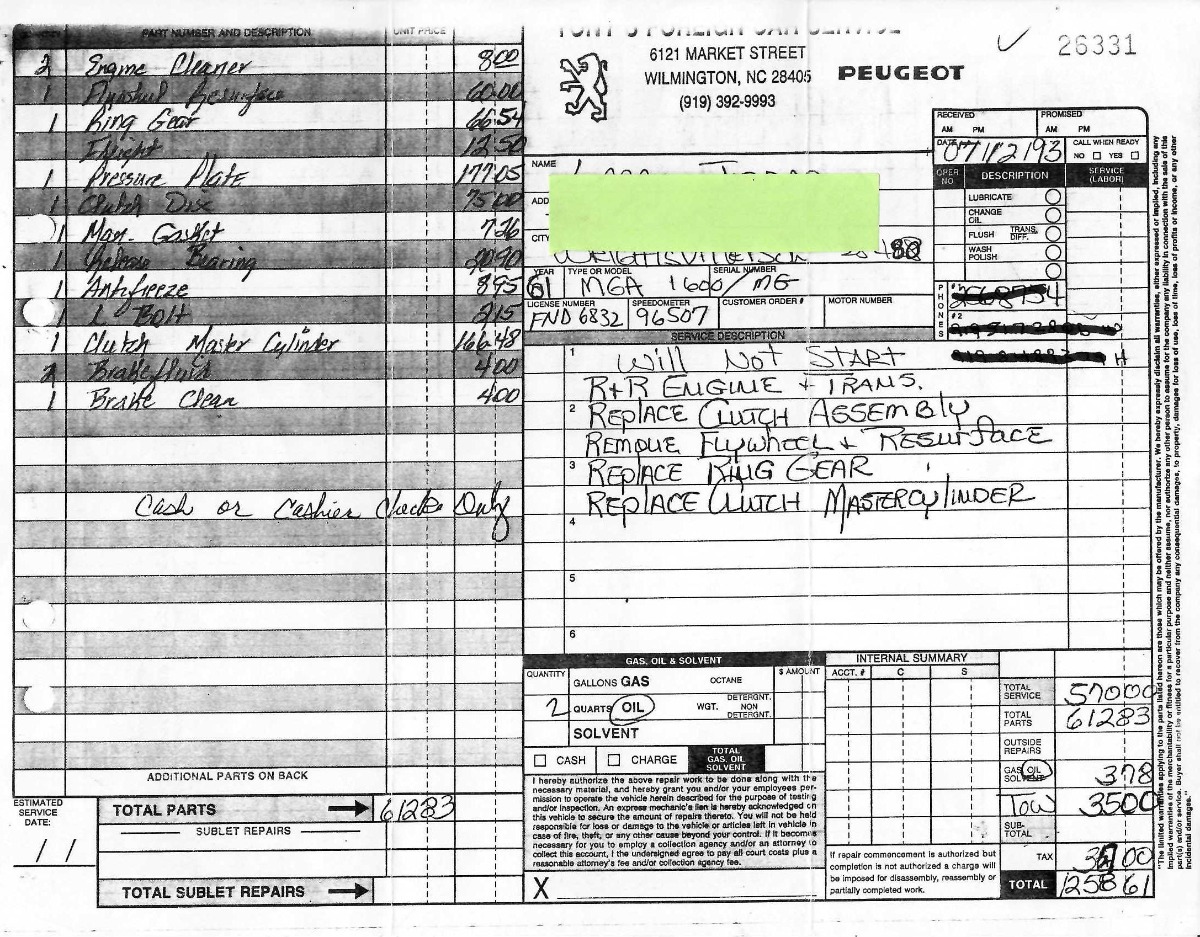 PART NUMBER AND DESCRIPTION UNIT PRICE
2 Engine Cleaner 8 00
1 Resurface 60 00
1 Ring Gear 66 54
12 50
1 Pressure Plate 177 05
1 Clutch Disc 75 00
1 Man. Gasket 7 26
1 Release Bearing 90
1 Antifreeze 8 95
1 Bolt 2 15
1 Clutch Master Cylinder 166 48
Brake fluid 4 00
1 Brake Clean 4 00
Cash or Cashier Checks Only
ADDITIONAL PARTS ON BACK
ESTIMATED SERVICE DATE:
/ /
TOTAL PARTS 612 83
SUBLET REPAIRS
TOTAL SUBLET REPAIRS
6121 MARKET STREET
WILMINGTON, NC 28405
(919) 392-9993
PEUGEOT
26331
RECEIVED AM PM
PROMISED AM PM
DATE 07/12/93
CALL WHEN READY
NO YES
NAME
ADD
CITY
YEAR 61 TYPE OR MODEL MGA 1600/MG SERIAL NUMBER
LICENSE NUMBER FND 6832 SPEEDOMETER 96507 CUSTOMER ORDER # MOTOR NUMBER
OPER NO. DESCRIPTION SERVICE (LABOR)
LUBRICATE
CHANGE OIL
FLUSH TRANS. DIFF.
WASH POLISH
PHONES
#2
H
SERVICE DESCRIPTION
1 Will Not START
R+R ENGINE + TRANS.
2 REPLACE CLUTCH ASSEMBLY
REMOVE FLYWHEEL + RESURFACE
3 REPLACE RING GEAR
REPLACE CLUTCH MASTERCYLINDER
4
5
6
GAS, OIL & SOLVENT
QUANTITY GALLONS GAS OCTANE $ AMOUNT
2 QUARTS OIL WGT. DETERGNT. NON DETERGNT.
SOLVENT
CASH CHARGE TOTAL GAS, OIL SOLVENT
I hereby authorize the above repair work to be done along with the
necessary material, and hereby grant you and/or your employees per-
mission to operate the vehicle herein described for the purpose of testing
and/or inspection. An express mechanic's lien is hereby acknowledged on
this vehicle to secure the amount of repairs thereto. You will not be held
responsible for loss or damage to the vehicle or articles left in vehicle in
case of fire, theft, or any other cause beyond your control. If it becomes
necessary for you to employ a collection agency and/or an attorney to
collect this account, I the undersigned agree to pay all court costs plus a
reasonable attorney's fee and/or collection agency fee.
X
INTERNAL SUMMARY
ACCT. # C S
If repair commencement is authorized but
completion is not authorized a charge will
be imposed for disassembly, reassembly or
partially completed work.
TOTAL SERVICE 570 00
TOTAL PARTS 612 83
OUTSIDE REPAIRS
GAS OIL SOLVENT 3 78
Tow 35 00
SUB-TOTAL
TAX 37 00
TOTAL 1258 61
"The limited warranties applying to the parts listed hereon are those which may be offered by the manufacturer. We hereby expressly disclaim all warranties, either expressed or implied, including any
implied warranties of the merchantability or fitness for a particular purpose and neither assume, nor authorize any other person to assume for the company any liability in connection with the sale of the
part(s) and/or service. Buyer shall not be entitled to recover from the company any consequential damages, to property, damages for loss of use, loss of time, loss of profits or income, or any other
incidental damages."